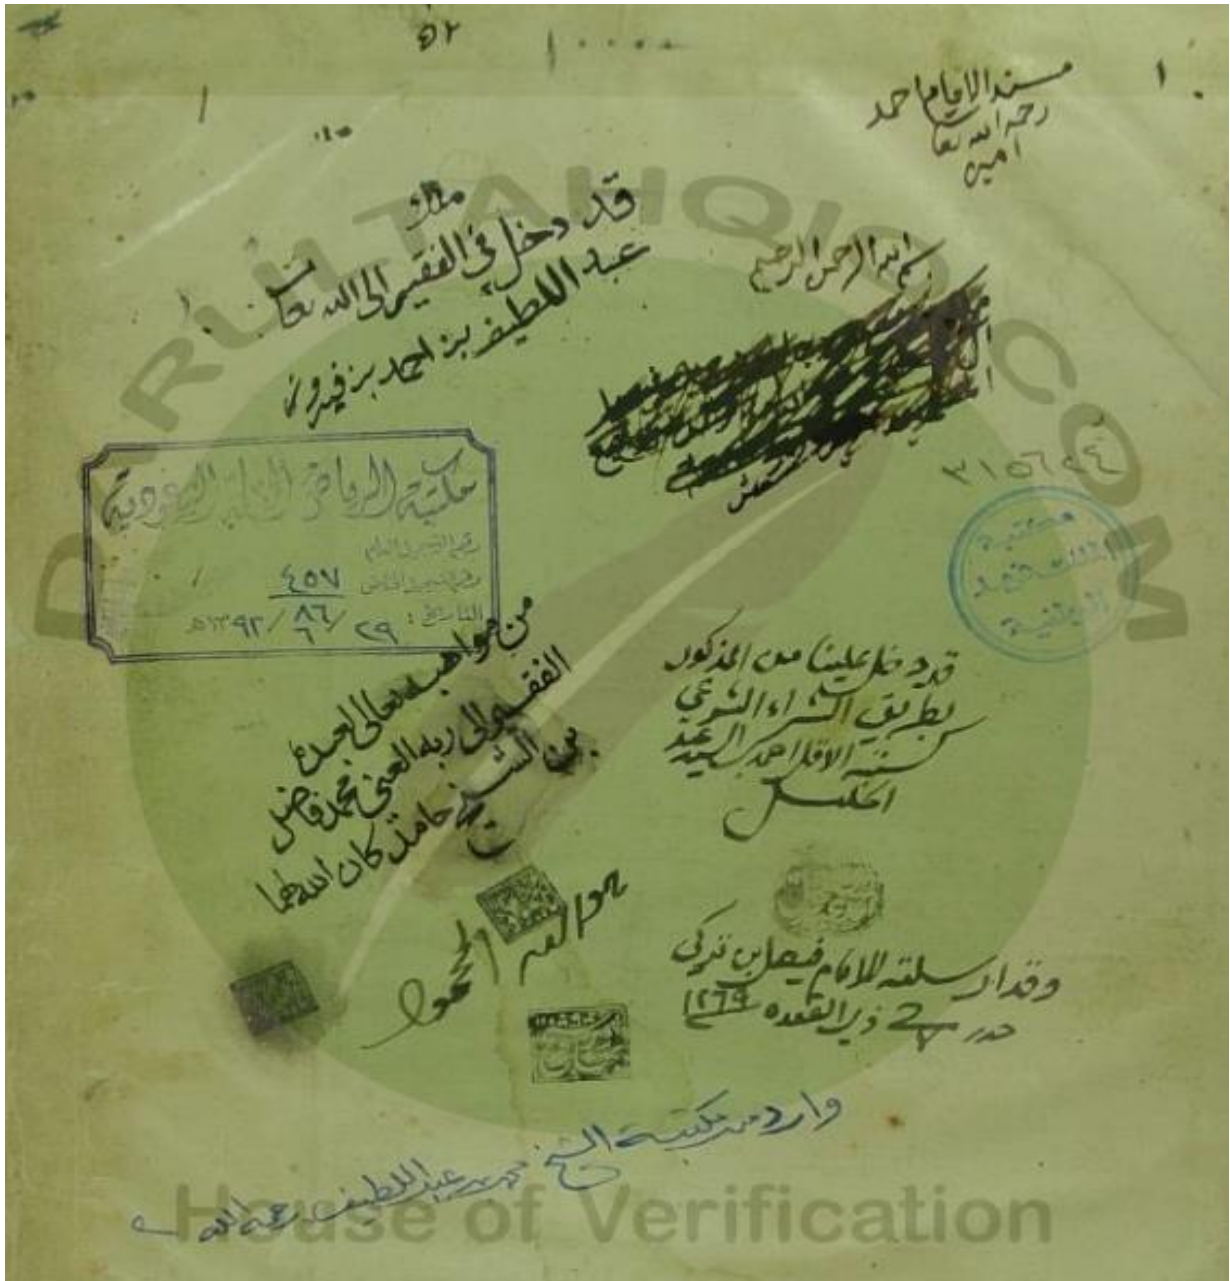 ٥٢
مسند الامام احمد
رحمه الله تعا
امين
ملك
قد دخل في الفقير الى الله تعا
عبد اللطيف بن احمد بن فيروز
بسم الله الرحمن الرحيم
مكتبة الرياض السعودية
رقم التسجيل العام
رقم التسجيل الخاص ٤٥٧
٨٦
التاريخ : ٢٩ / ٦ / ١٣٩٢هـ
مكتبة
الملك فهد
الوطنية
من مواهبه تعالى لعبده
الفقير الى ربه الغني محمد فاضل
بن الشيخ حامد كان الله لهما
قد دخل علينا من المذكور
بطريق الشراء الشرعي
كتبه الاقل احمد السيد
هو الله المحمود
وقد ارسلته للامام فيصل بن تركي
ذي القعده ١٢٦٩
وارد من مكتبة الشيخ محمد بن عبد اللطيف رحمه الله
DARUTAHQIQ.COM
House of Verification